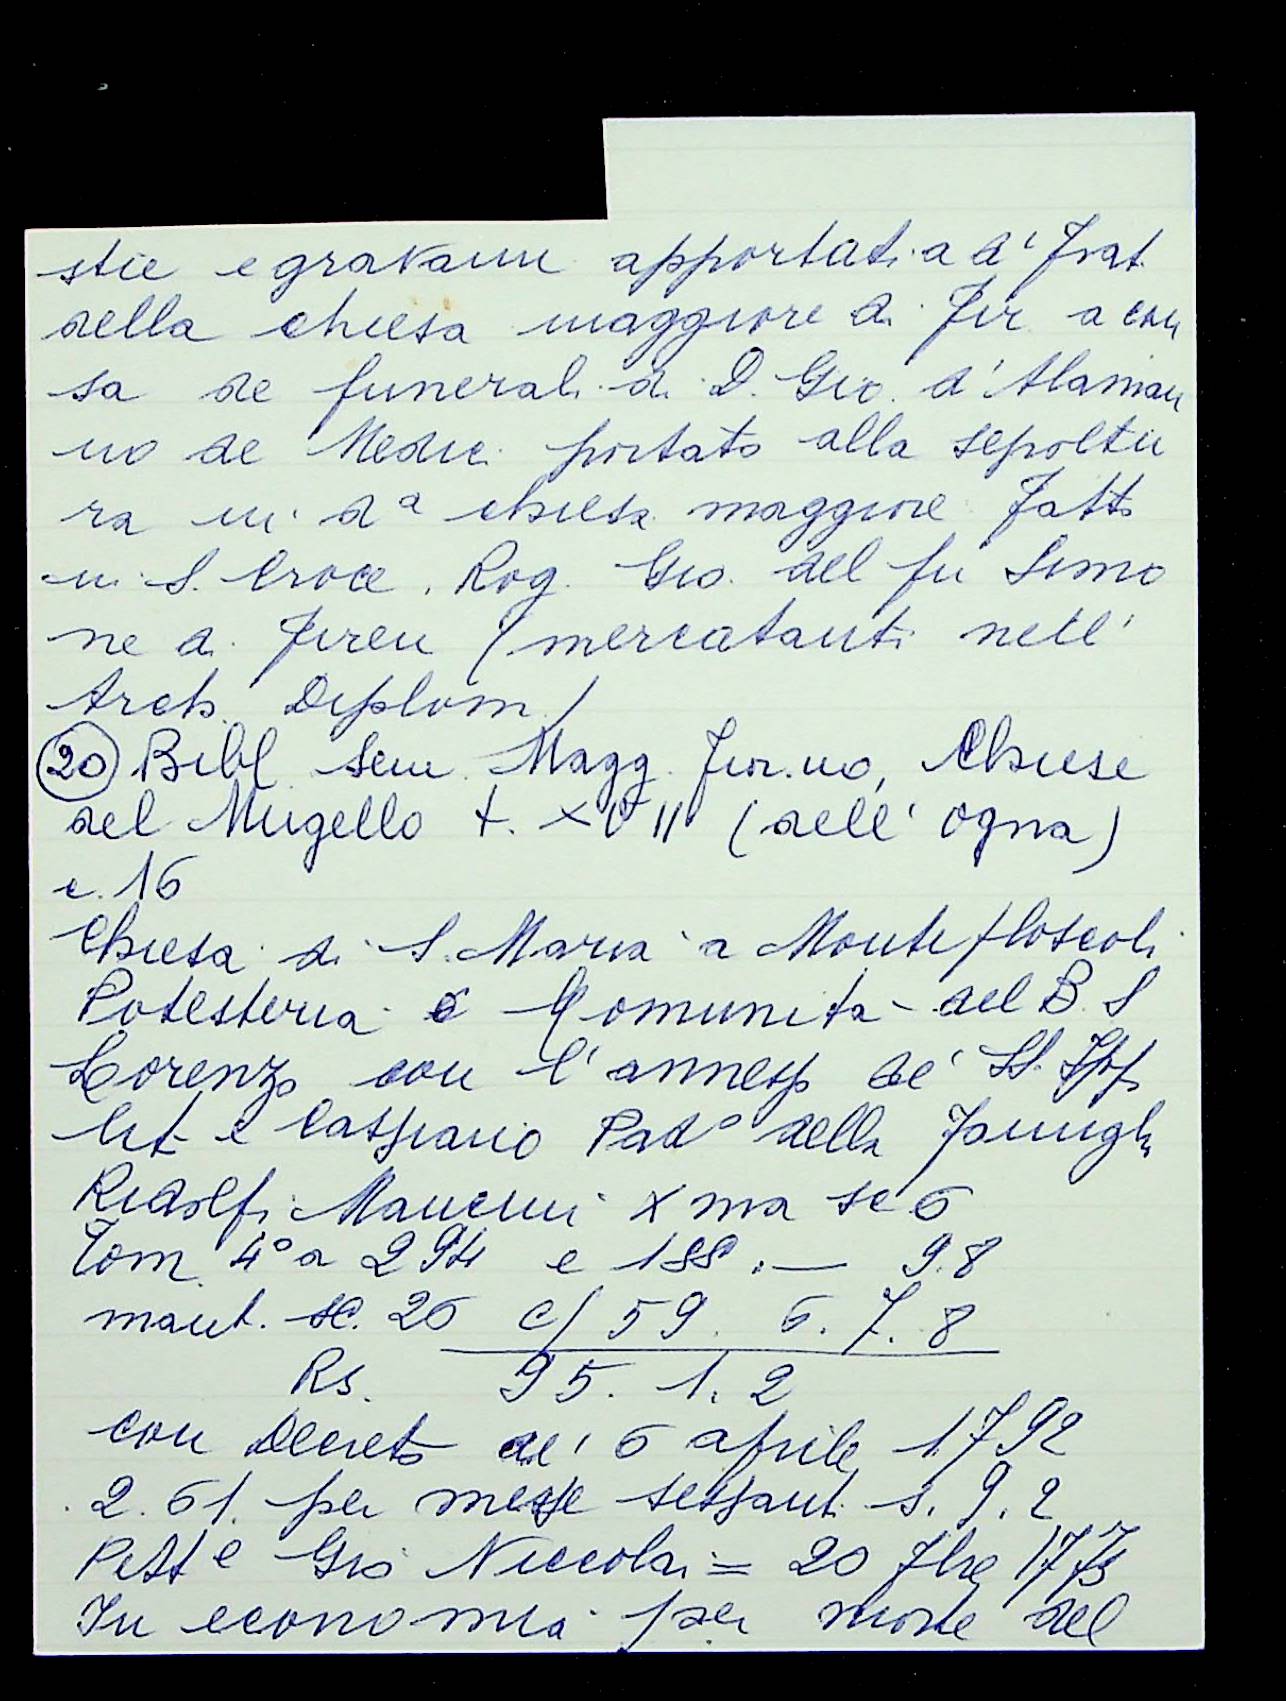 stie e gravami apportati a d' Frat.
della chiesa maggiore di Fir a cau
sa de funerali di D. Gio. d'Alaman
no de Medici portato alla sepoltu
ra in da chiesa maggiore Fatto
in S. Croce. Rog. Gio. del fu Simo
ne di Firen (mercatanti nell'
Arch. Diplom)
(20) Bibl Sem. Magg. Fior.no, Chiese
del Mugello t. XVII (dell' Ogna)
c. 16
Chiesa di S. Maria a Montefloscoli
Potesteria e Comunità del B. S
Lorenzo con l'annesso de' SS. Ipp
lit e Cassiano Pado della Famigli
Ridolfi Mancini X ma sc 6
Tom. 4° a 294 e 188. — 9.8
mant. sc. 26 c/ 59. 6. 7. 8
Rs. 95. 1. 2
con Decreto de' 6 aprile 1792
2. 61. per messe sessant. s. 9. 2
Gio Niccolai = 20 7bre 1773
In economia per morte del